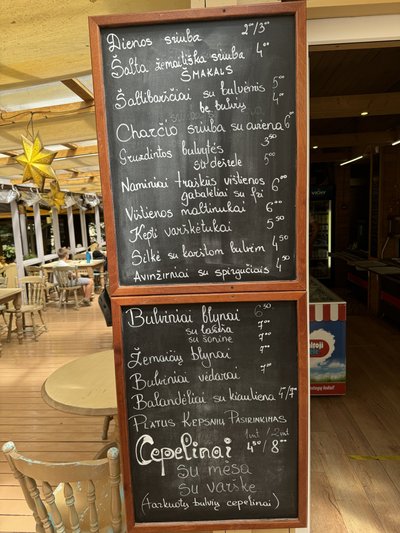 Dienos sriuba 2⁰⁰/3⁰⁰
Šalta žemaitiška sriuba 4⁰⁰
ŠMAKALS
Šaltibarščiai su bulvėmis 5⁰⁰
be bulvių 4⁰⁰
Charčio sriuba su aviena 6⁰⁰
Gruzdintos bulvytės 3⁵⁰
su dešrele 5⁰⁰
Naminiai traškūs vištienos 6⁰⁰
gabalėliai su fri
Vištienos maltinukai 6⁰⁰
Kepti varškėtukai 5⁵⁰
Silkė su karštom bulvėm 4⁵⁰
Avinžirniai su spirgučiais 4⁵⁰
Bulviniai blynai 6⁵⁰
su lašiša 7⁰⁰
su šonine 7⁰⁰
Žemaičių blynai 7⁰⁰
Bulviniai vėdarai 7⁰⁰
Balandėliai su kiauliena 4/7⁰⁰
PLATUS KEPSNIŲ PASIRINKIMAS
1vnt / 2vnt
Cepelinai 4⁵⁰/8⁰⁰
su mėsa
su varške
(tarkuotų bulvių cepelinai)